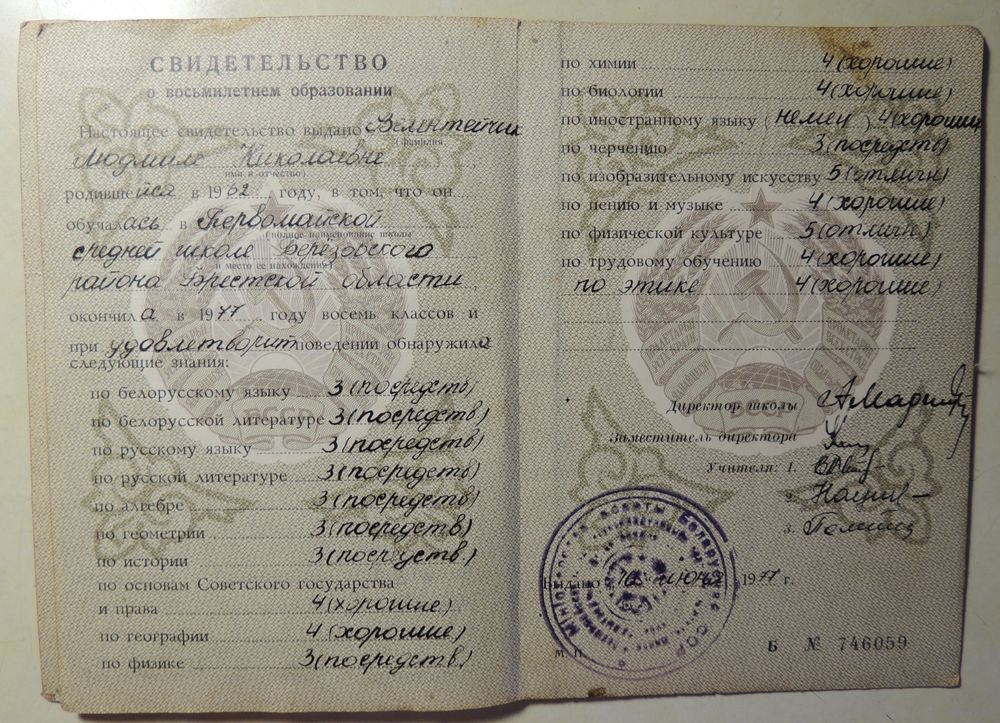 СВИДЕТЕЛЬСТВО
о восьмилетнем образовании
Настоящее свидетельство выдано
(фамилия,
Людмиле Николаевне
имя и отчество)
родившейся в 1962 году, в том, что он
обучалась в Первомайской
(полное наименование школы
средней школе Берёзовского
и место ее нахождения)
района Брестской области
окончила в 1977 году восемь классов и
при удовлетворит поведении обнаружила
следующие знания:
по белорусскому языку 3 (посредств)
по белорусской литературе 3 (посредств)
по русскому языку 3 (посредств)
по русской литературе 3 (посредств)
по алгебре 3 (посредств)
по геометрии 3 (посредств)
по истории 3 (посредств)
по основам Советского государства
и права 4 (хорошие)
по географии 4 (хорошие)
по физике 3 (посредств)
по химии 4 (хорошие)
по биологии 4 (хорошие)
по иностранному языку (немец) 4 (хорошие
по черчению 3 (посредств)
по изобразительному искусству 5 (отличн)
по пению и музыке 4 (хорошие)
по физической культуре 5 (отличн)
по трудовому обучению 4 (хорошие)
по этике 4 (хорошие)
Директор школы
Заместитель директора
Учителя: 1.
3.
Выдано июня 1977 г.
М. П.
Б № 746059
БССР
БССР